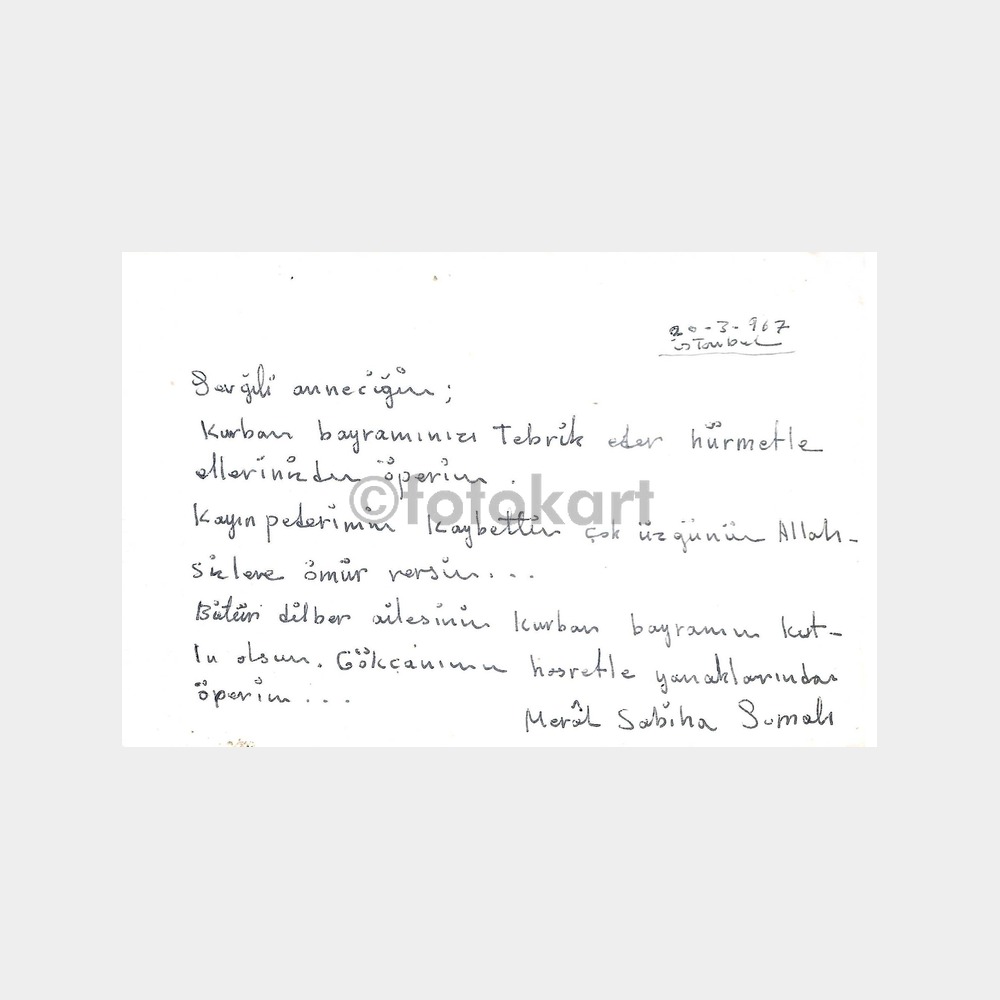 20-3-967
istanbul
Sevgili anneciğim;
Kurban bayramınızı Tebrik eder hürmetle
ellerinizden öperim.
©fotokart
Kayın pederimin kaybettim çok üzgünüm Allah-
sizlere ömür versin...
Bütün dilber ailesinin kurban bayramın kut-
lu olsun. Gökçanımın hasretle yanaklarından
öperim...
Merâl Sabiha Sumalı